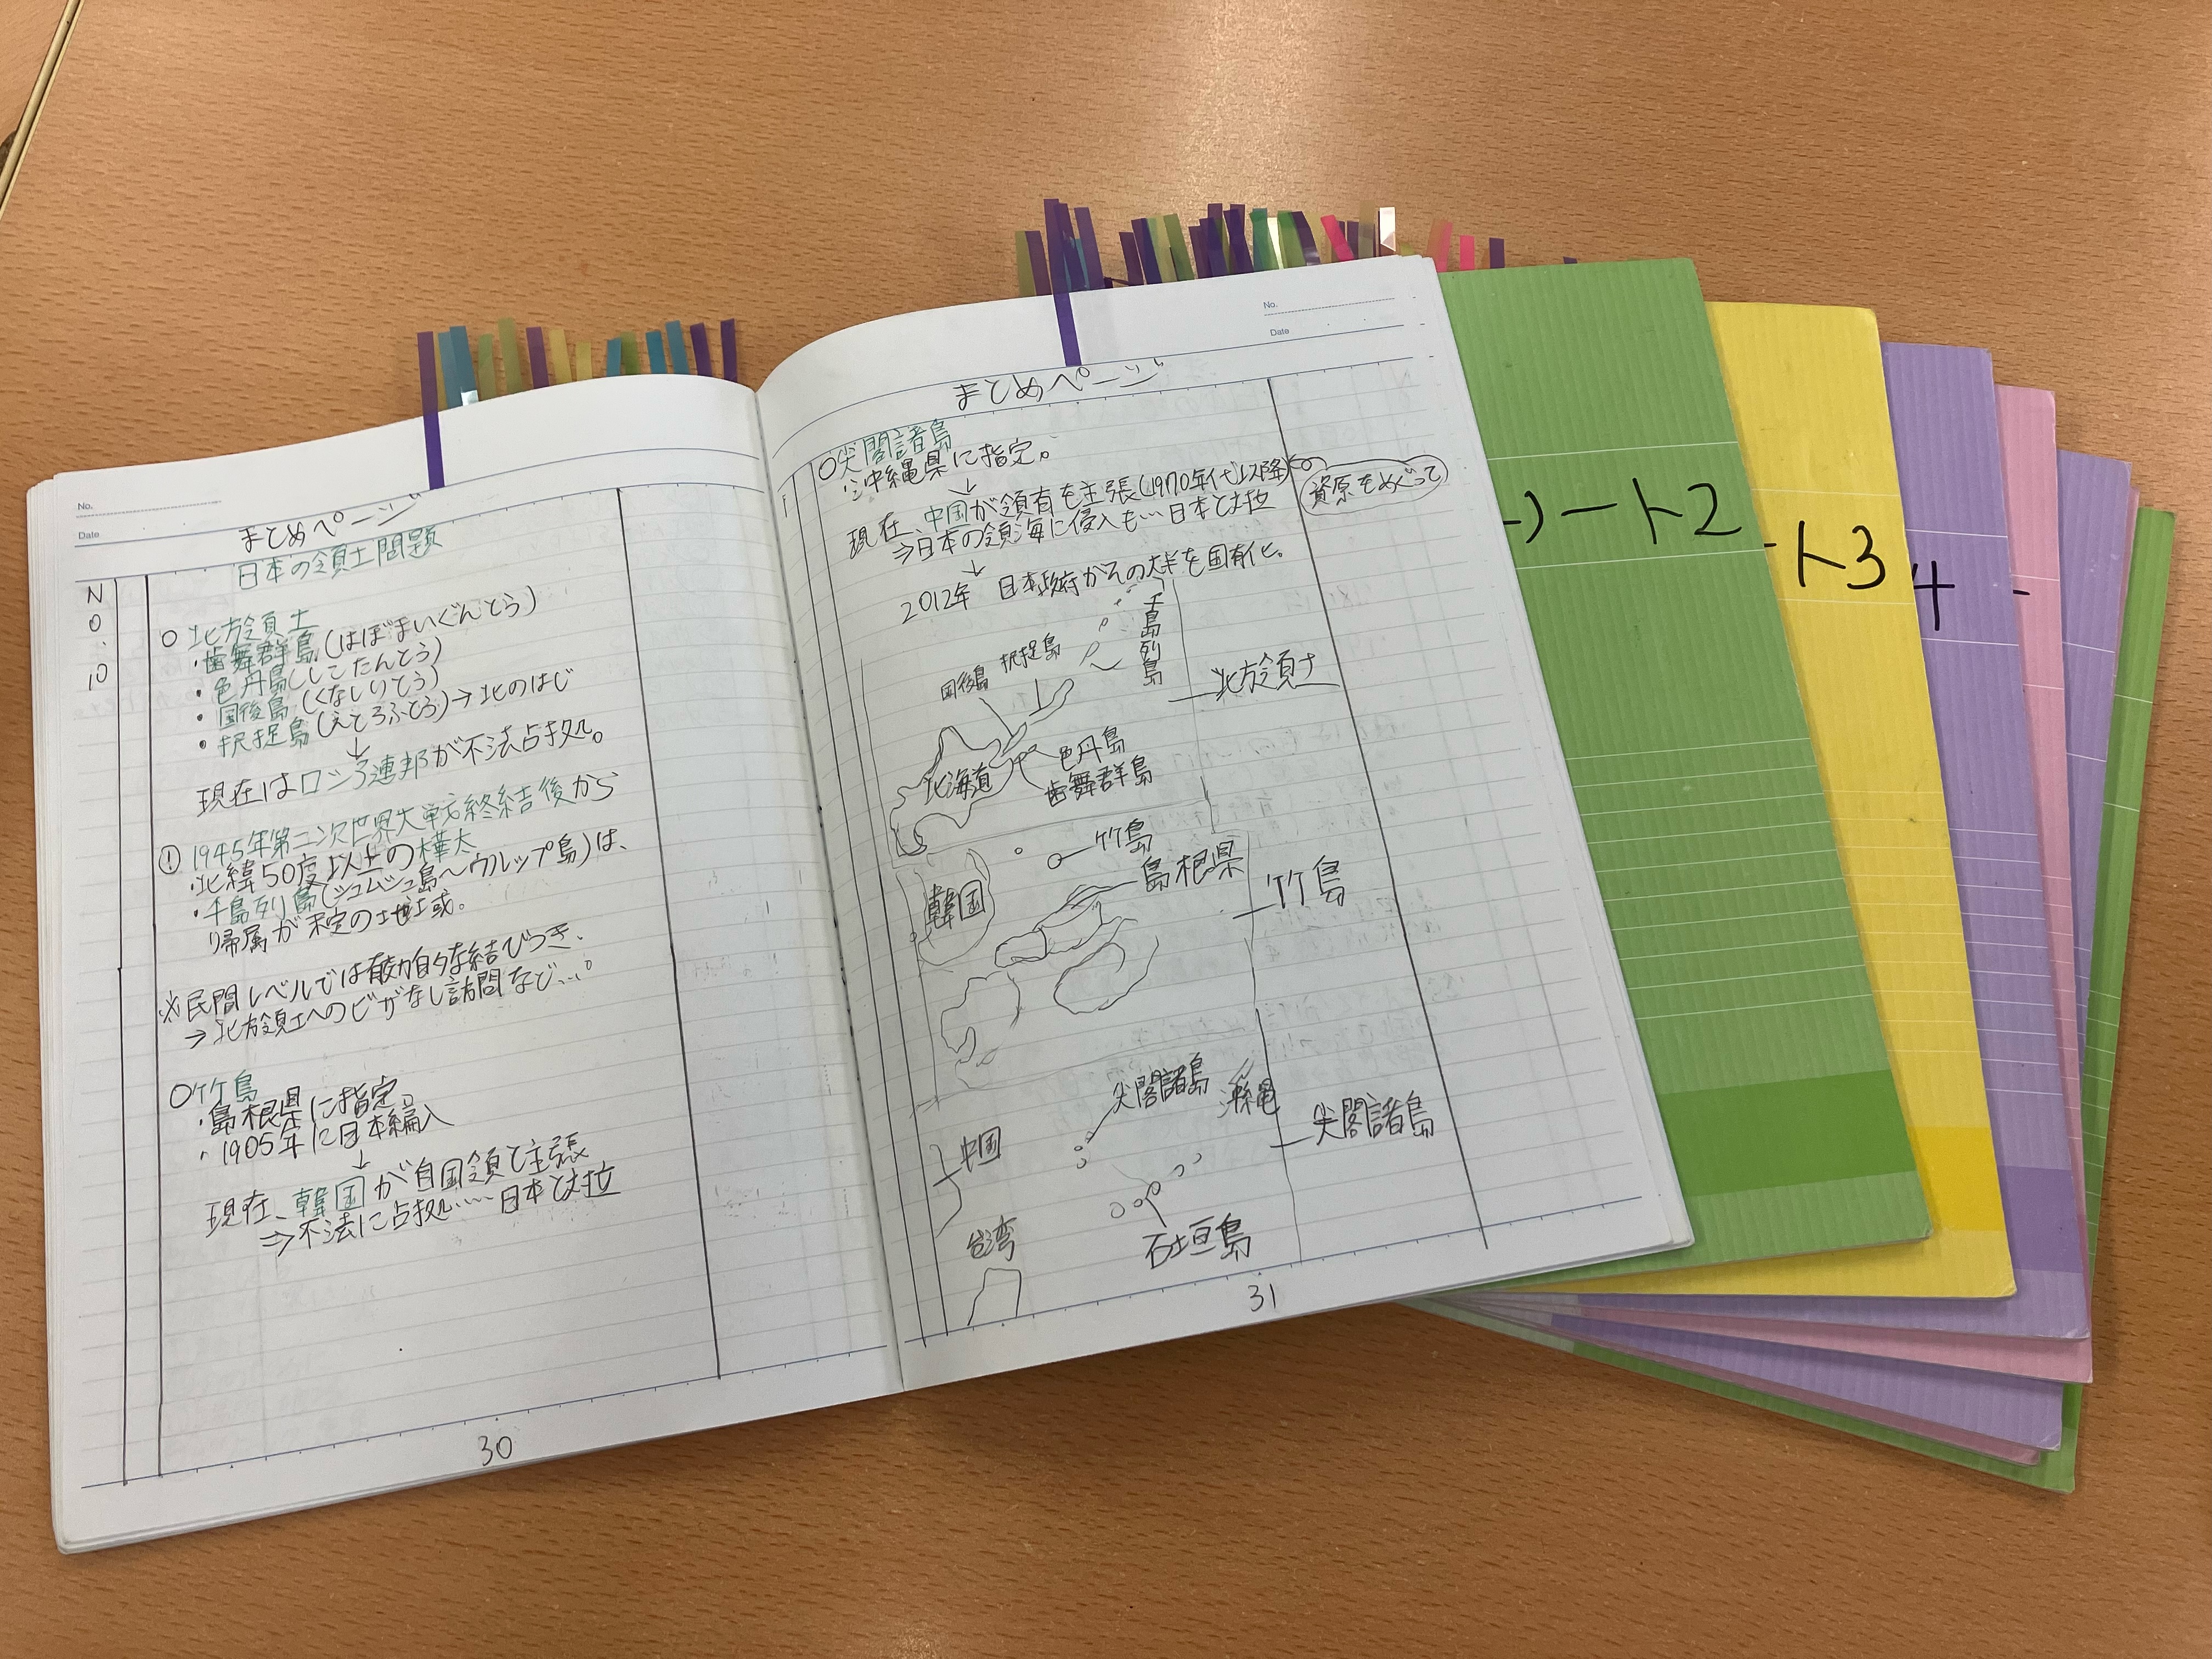 No.
Date
まとめページ
日本の領土問題
No.10
○北方領土
・歯舞群島(はぼまいぐんとう)
・色丹島(しこたんとう)
・国後島(くなしりとう)
・択捉島(えとろふとう)→北のはじ
↓
現在はロシア連邦が不法占拠。
① 1945年第二次世界大戦終結後から
・北緯50度以上の樺太
・千島列島(シュムシュ島〜ウルップ島)は、
帰属が未定の地域。
※民間レベルでは友好的な結びつき、
⇒北方領土へのビザなし訪問など…。
○竹島
・島根県に指定。
・1905年に日本編入
↓
現在、韓国が自国領と主張
⇒不法に占拠…日本と対立
30
No.
Date
まとめページ
○尖閣諸島
沖縄県に指定。
↓
現在、中国が領有を主張(1970年代以降)
資源をめぐって
⇒日本の領海に侵入も…日本と対立
↓
2012年 日本政府がその大半を国有化。
千島列島
国後島 択捉島
北方領土
北海道
色丹島
歯舞群島
竹島
島根県
韓国
竹島
尖閣諸島
沖縄
尖閣諸島
中国
台湾
石垣島
31
ート2
ト3
4